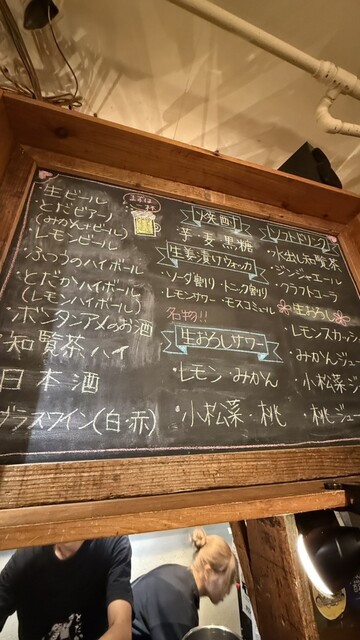 ・生ビール
・とだビアー
(みかん+ビール)
・レモンビール
・ふつうのハイボール
・とだかハイボール
(レモンハイボール)
・ボンタンアメのお酒
・知覧茶ハイ
・日本酒
グラスワイン(白・赤)
まずは
焼酎
芋・麦・黒糖
生姜漬けウォッカ
・ソーダ割り・トニック割り
・レモンサワー・モスコミュール
名物!!
生おろしサワー
・レモン・みかん
・小松菜・桃
ソフトドリンク
・水出し知覧茶
・ジンジャエール
・クラフトコーラ
生おろし
・レモンスカッシュ
・みかんジュー
・小松菜ジ
・桃ジュ